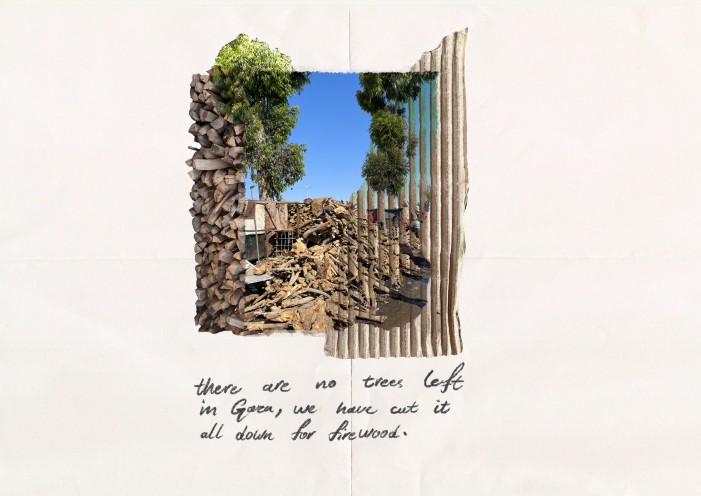 there are no trees left
in Gaza, we have cut it
all down for firewood.